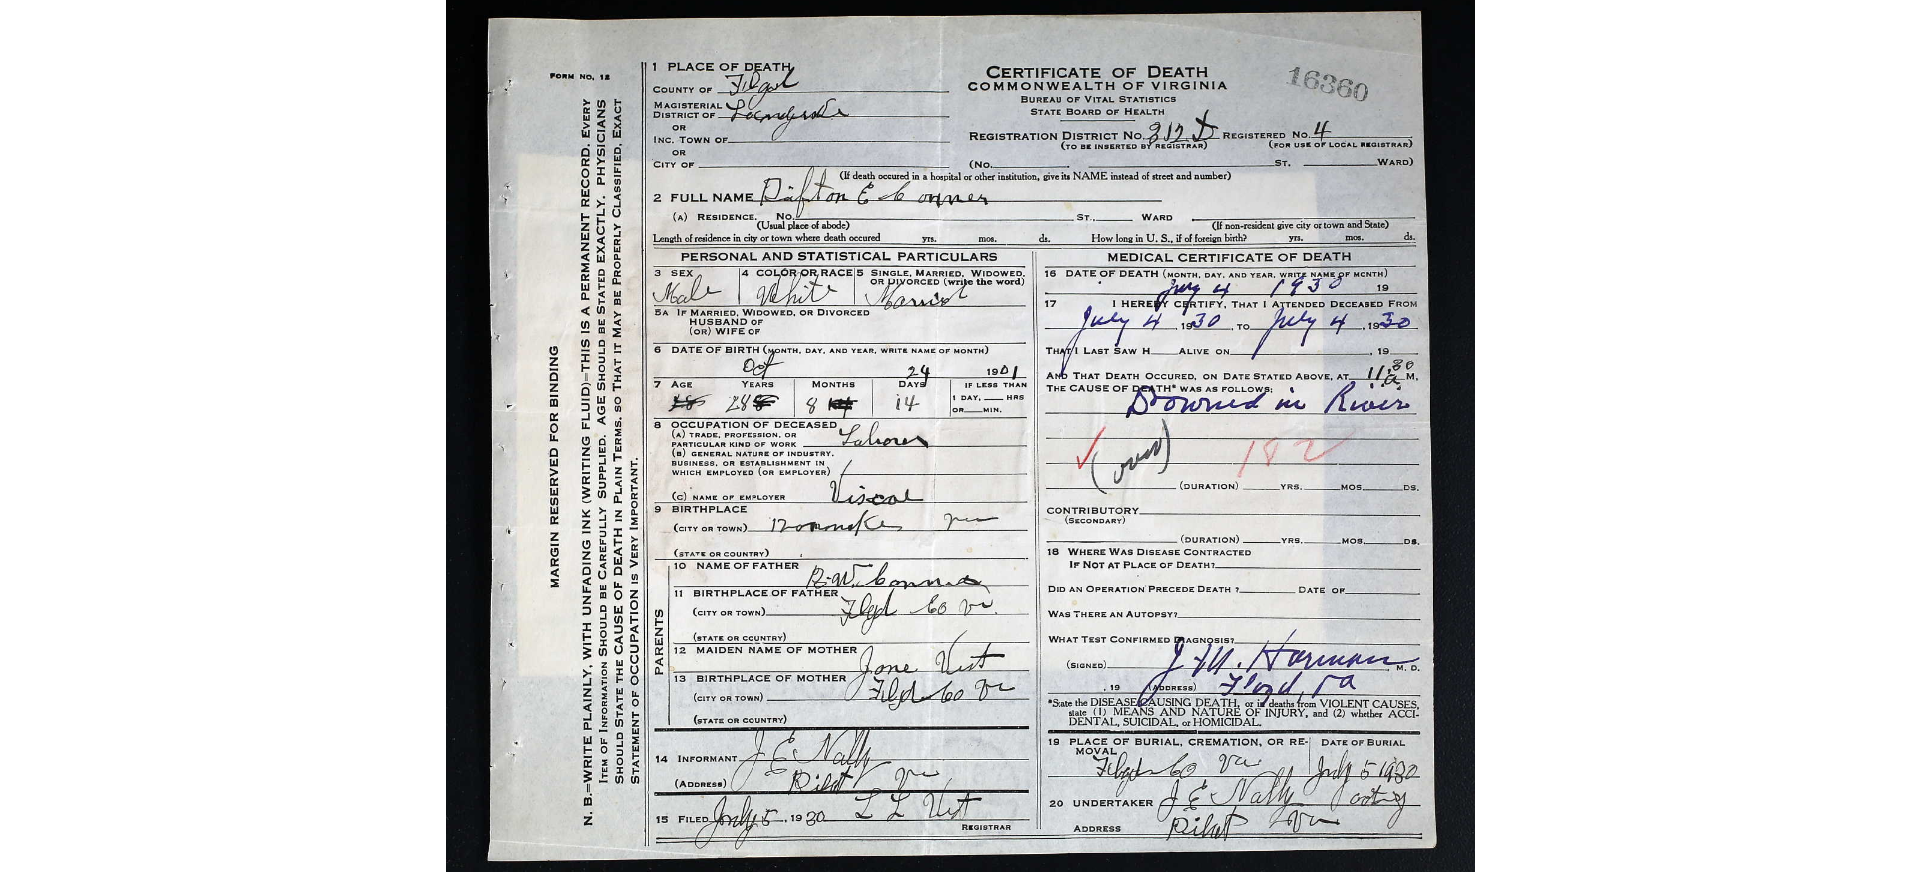 FORM NO. 12
MARGIN RESERVED FOR BINDING
N. B.=WRITE PLAINLY, WITH UNFADING INK (WRITING FLUID)=THIS IS A PERMANENT RECORD. EVERY
ITEM OF INFORMATION SHOULD BE CAREFULLY SUPPLIED. AGE SHOULD BE STATED EXACTLY. PHYSICIANS
SHOULD STATE THE CAUSE OF DEATH IN PLAIN TERMS, SO THAT IT MAY BE PROPERLY CLASSIFIED. EXACT
STATEMENT OF OCCUPATION IS VERY IMPORTANT.
CERTIFICATE OF DEATH
COMMONWEALTH OF VIRGINIA
BUREAU OF VITAL STATISTICS
STATE BOARD OF HEALTH
16360
1 PLACE OF DEATH
COUNTY OF Floyd
MAGISTERIAL
DISTRICT OF
OR
INC. TOWN OF
OR
CITY OF
REGISTRATION DISTRICT No. 312 D REGISTERED No. 4
(TO BE INSERTED BY REGISTRAR) (FOR USE OF LOCAL REGISTRAR)
(No. ST. WARD)
(If death occured in a hospital or other institution, give its NAME instead of street and number)
2 FULL NAME E Conner
(A) RESIDENCE. No. ST., WARD
(Usual place of abode) (If non-resident give city or town and State)
Length of residence in city or town where death occured yrs. mos. ds. How long in U. S., if of foreign birth? yrs. mos. ds.
PERSONAL AND STATISTICAL PARTICULARS
3 SEX 4 COLOR OR RACE 5 SINGLE, MARRIED, WIDOWED,
OR DIVORCED (write the word)
Male White Married
5A IF MARRIED, WIDOWED, OR DIVORCED
HUSBAND OF
(OR) WIFE OF
6 DATE OF BIRTH (MONTH, DAY, AND YEAR, WRITE NAME OF MONTH)
Oct 24 1901
7 AGE YEARS MONTHS DAYS IF LESS THAN
1 DAY, HRS
OR MIN.
28 8 14
8 OCCUPATION OF DECEASED
(A) TRADE, PROFESSION, OR
PARTICULAR KIND OF WORK Laborer
(B) GENERAL NATURE OF INDUSTRY,
BUSINESS, OR ESTABLISHMENT IN
WHICH EMPLOYED (OR EMPLOYER)
(C) NAME OF EMPLOYER Viscol
9 BIRTHPLACE
(CITY OR TOWN) Roanoke Va
(STATE OR COUNTRY)
PARENTS
10 NAME OF FATHER R.W. Conner
11 BIRTHPLACE OF FATHER
(CITY OR TOWN) Floyd Co Va.
(STATE OR COUNTRY)
12 MAIDEN NAME OF MOTHER Jane Vest
13 BIRTHPLACE OF MOTHER
(CITY OR TOWN) Floyd Co Va
(STATE OR COUNTRY)
14 INFORMANT J E Nally
(ADDRESS) Va
15 FILED July 5, 1930 L L Vest
REGISTRAR
MEDICAL CERTIFICATE OF DEATH
16 DATE OF DEATH (MONTH, DAY, AND YEAR, WRITE NAME OF MONTH)
July 4 1930 19
17 I HEREBY CERTIFY, THAT I ATTENDED DECEASED FROM
July 4, 1930, TO July 4, 1930
THAT I LAST SAW H ALIVE ON , 19
AND THAT DEATH OCCURED, ON DATE STATED ABOVE, AT 11.30 a M.
THE CAUSE OF DEATH* WAS AS FOLLOWS:
Drowned in River
(over) 182
(DURATION) YRS. MOS. DS.
CONTRIBUTORY
(SECONDARY)
(DURATION) YRS. MOS. DS.
18 WHERE WAS DISEASE CONTRACTED
IF NOT AT PLACE OF DEATH?
DID AN OPERATION PRECEDE DEATH? DATE OF
WAS THERE AN AUTOPSY?
WHAT TEST CONFIRMED DIAGNOSIS?
(SIGNED) J. M. Harman M. D.
, 19 (ADDRESS) Floyd, Va
*State the DISEASE CAUSING DEATH, or in deaths from VIOLENT CAUSES,
state (1) MEANS AND NATURE OF INJURY, and (2) whether ACCI-
DENTAL, SUICIDAL, or HOMICIDAL.
19 PLACE OF BURIAL, CREMATION, OR RE- DATE OF BURIAL
MOVAL
Floyd Co Va July 5 1930
20 UNDERTAKER J E Nally acting
ADDRESS Va